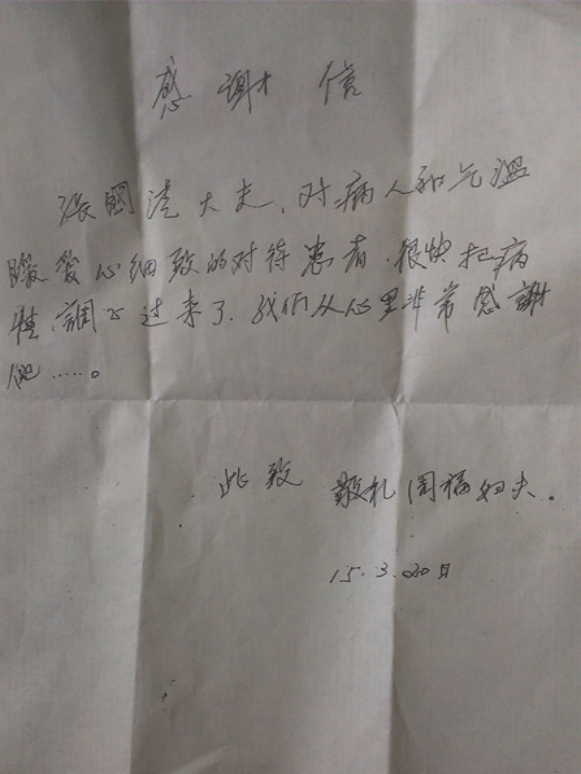 感謝信
張國清大夫,对病人和气温
暖爱心细致的对待患者.很快把病
情調 过来了.我们从心里非常感謝
他……。
此致 敬礼 周福 夫.
15.3.